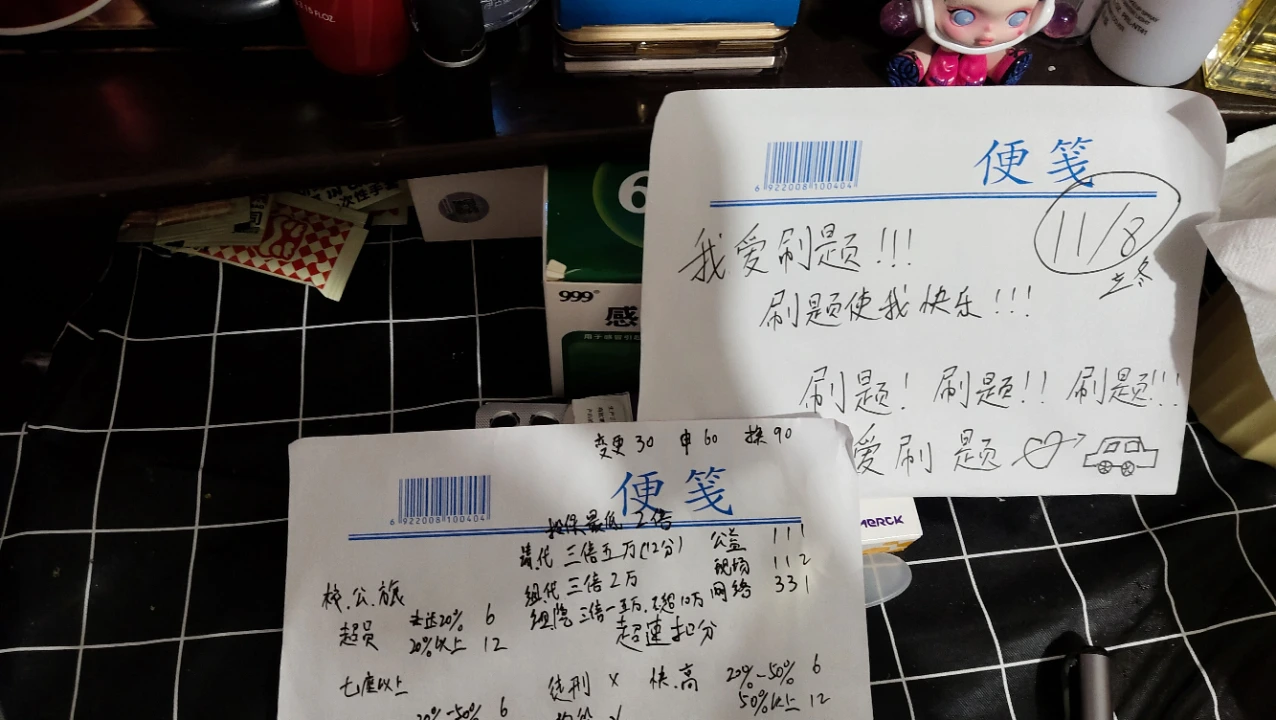 便笺
6 922008 100404
11/8
立冬
我爱刷题!!!
刷题使我快乐!!!
刷题! 刷题!! 刷题!!!
爱刷题
变更30 申60 换90
便笺
6 922008 100404
投保最低 2倍
请代 三倍五万(12分)
组代 三倍2万
公益 111
现场 112
网络 331
校.公.旅
超员 未达20% 6
20%以上 12
超速扣分
七座以上
20%-50% 6
徒刑 x
快.高 20%-50% 6
50%以上 12
999
感
6
MERCK
次性手套